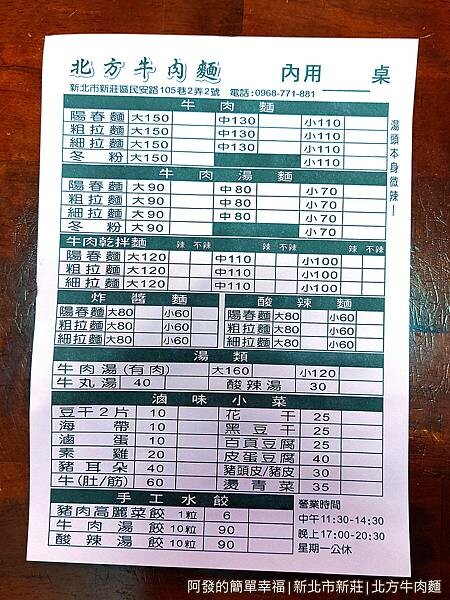 北方牛肉麵 內用 桌
新北市新莊區民安路105巷2弄2號 電話:0968-771-881
湯頭本身微辣!
牛肉麵
陽春麵 大150 中130 小110
粗拉麵 大150 中130 小110
細拉麵 大150 中130 小110
冬粉 大150 小110
牛肉湯麵
陽春麵 大90 中80 小70
粗拉麵 大90 中80 小70
細拉麵 大90 中80 小70
冬粉 大90 小70
牛肉乾拌麵 辣 不辣 辣 不辣 辣 不辣
陽春麵 大120 中110 小100
粗拉麵 大120 中110 小100
細拉麵 大120 中110 小100
炸醬麵 酸辣麵
陽春麵 大80 小60 陽春麵 大80 小60
粗拉麵 大80 小60 粗拉麵 大80 小60
細拉麵 大80 小60 細拉麵 大80 小60
湯類
牛肉湯(有肉) 大160 小120
牛丸湯 40 酸辣湯 30
滷味小菜
豆干2片 10 花干 25
海帶 10 黑豆干 25
滷蛋 10 百頁豆腐 25
素雞 20 皮蛋豆腐 40
豬耳朵 40 豬頭皮/豬皮 30
牛(肚/筋) 60 燙青菜 35
手工水餃
豬肉高麗菜餃 1粒 6
牛肉湯餃 10粒 90
酸辣湯餃 10粒 90
營業時間
中午11:30-14:30
晚上17:00-20:30
星期一公休
阿發的簡單幸福|新北市新莊|北方牛肉麵